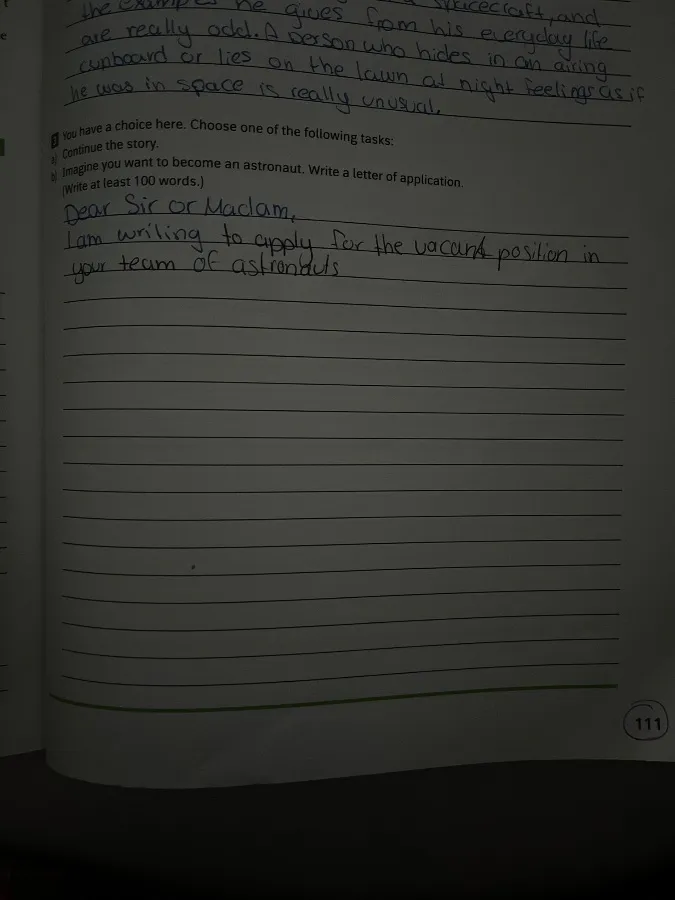 the examples he gives from his everyday life
spacecraft, and
are really odd. A person who hides in an airing
cupboard or lies on the lawn at night feelings as if
he was in space is really unusual.
You have a choice here. Choose one of the following tasks:
a) Continue the story.
b) Imagine you want to become an astronaut. Write a letter of application.
(Write at least 100 words.)
Dear Sir or Madam,
I am wriling to apply for the vacant position in
your team of astronauts
111